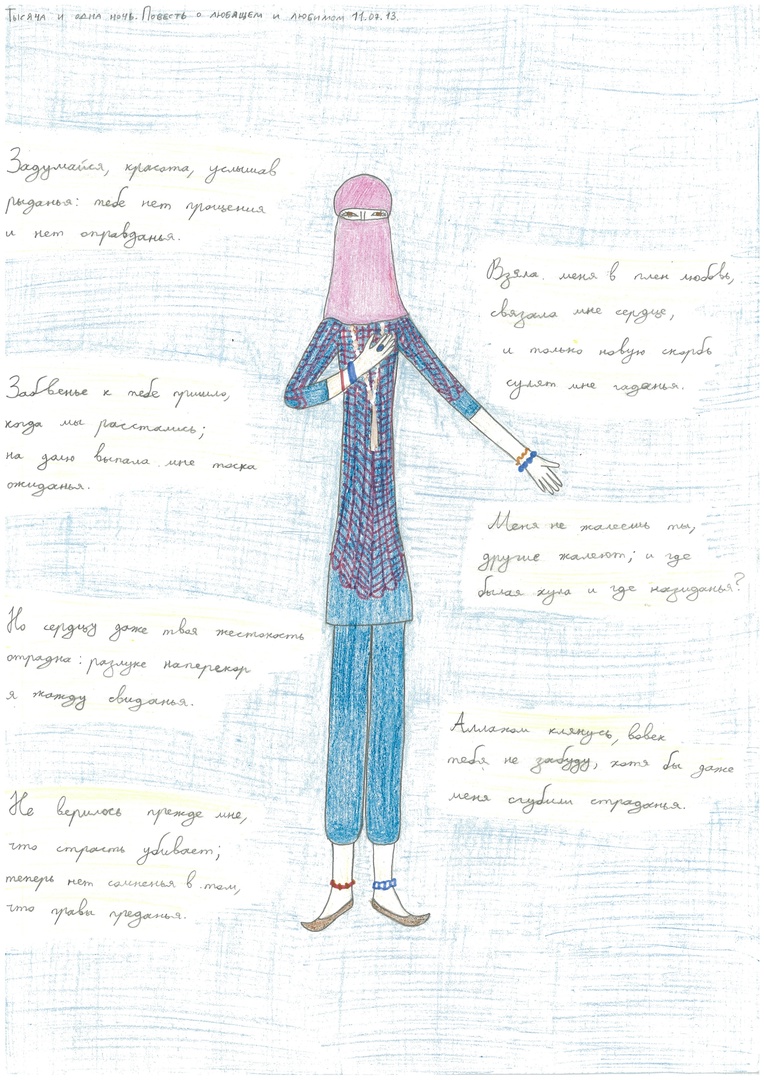 Тысяча и одна ночь. Повесть о любящем и любимом 11.07.13.
Задумайся, красота, услышав
рыданья: тебе нет прощения
и нет оправданья.
Забвенье к тебе пришло,
когда мы расстались;
на долю выпала мне тоска
ожиданья.
Но сердцу даже твоя жестокость
отрадна: разлуке наперекор
я жажду свиданья.
Не верилось прежде мне,
что страсть убивает;
теперь нет сомненья в том,
что правы преданья.
Взяла меня в плен любовь,
связала мне сердце,
и только новую скорбь
сулят мне гаданья.
Меня не жалеешь ты,
другие жалеют; и где
былая хула и где назиданья?
Аллахом клянусь, вовек
тебя не забуду, хотя бы даже
меня сгубили страданья.